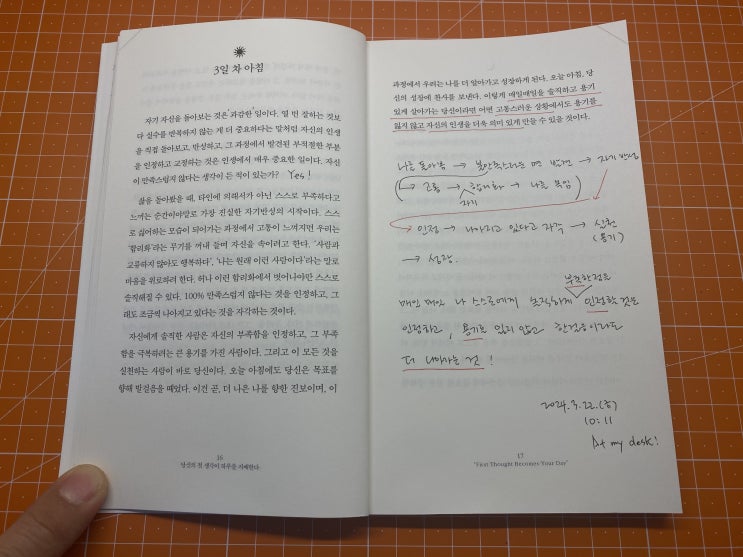 3일 차 아침
자기 자신을 돌아보는 것은 과감한 일이다. 열 번 잘하는 것보
다 실수를 반복하지 않는 게 더 중요하다는 말처럼 자신의 인생
을 직접 돌아보고, 반성하고, 그 과정에서 발견된 부적절한 부분
을 인정하고 교정하는 것은 인생에서 매우 중요한 일이다. 자신
이 만족스럽지 않다는 생각이 든 적이 있는가? Yes!
삶을 돌아봤을 때, 타인에 의해서가 아닌 스스로 부족하다고
느끼는 순간이야말로 가장 진실한 자기반성의 시작이다. 스스
로 싫어하는 모습이 되어가는 과정에서 고통이 느껴지면 우리는
'합리화'라는 무기를 꺼내 들며 자신을 속이려고 한다. '사람과
교류하지 않아도 행복하다', '나는 원래 이런 사람이다'라는 말로
마음을 위로하려 한다. 허나 이런 합리화에서 벗어나야만 스스로
솔직해질 수 있다. 100% 만족스럽지 않다는 것을 인정하고, 그
래도 조금씩 나아지고 있다는 것을 자각하는 것이다.
자신에게 솔직한 사람은 자신의 부족함을 인정하고, 그 부족
함을 극복하려는 큰 용기를 가진 사람이다. 그리고 이 모든 것을
실천하는 사람이 바로 당신이다. 오늘 아침에도 당신은 목표를
향해 발걸음을 떼었다. 이건 곧, 더 나은 나를 향한 진보이며, 이
16
당신의 첫 생각이 하루를 지배한다
과정에서 우리는 나를 더 알아가고 성장하게 된다. 오늘 아침, 당
신의 성장에 찬사를 보낸다. 이렇게 매일매일을 솔직하고 용기
있게 살아가는 당신이라면 어떤 고통스러운 상황에서도 용기를
잃지 않고 자신의 인생을 더욱 의미 있게 만들 수 있을 것이다.
나를 돌아봄 → 불만족스러운 면 발견 → 자기 반성
→ 고통 → 합리화 → 나를 속임
자기
인정 → 나아지고 있다고 자각 → 실천
(용기)
→ 성장.
부족한 점은
매일 매일 나 스스로에게 솔직하게 인정할 것은
인정하고, 용기를 잃지 않고 한걸음이라도
더 나아가는 것!
2024.3.22.(금)
10:11
At my desk!
17
"First Thought Becomes Your Day"